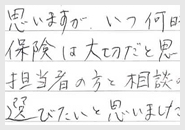 思いますが、いつ何時
保険は大切だと思
担当者の方と相談
選びたいと思いました